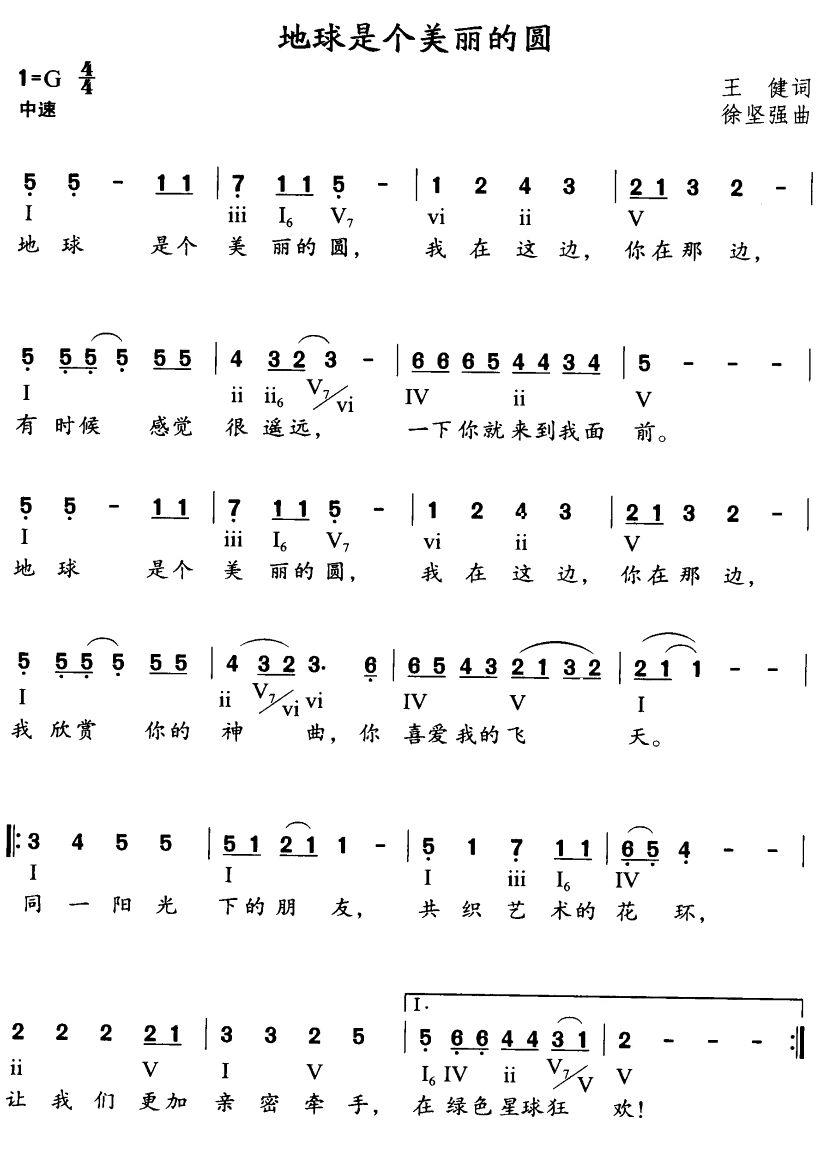 地球是个美丽的圆
1=G 4/4
王 健词
中速
徐坚强曲
5̣ 5̣ - 1 1 | 7̣ 1 1 5̣ - | 1 2 4 3 | 2 1 3 2 - |
I iii I6 V7 vi ii V
地 球 是个 美 丽的 圆, 我 在 这 边, 你在那 边,
5̣ 5̣ 5̣ 5̣ 5 5 | 4 3 2 3 - | 6 6 6 5 4 4 3 4 | 5 - - - |
I ii ii6 V7/vi IV ii V
有 时候 感觉 很 遥远, 一下你就来到我面 前。
5̣ 5̣ - 1 1 | 7̣ 1 1 5̣ - | 1 2 4 3 | 2 1 3 2 - |
I iii I6 V7 vi ii V
地 球 是个 美 丽的 圆, 我 在 这 边, 你在那 边,
5̣ 5̣ 5̣ 5̣ 5 5 | 4 3 2 3. 6̣ | 6 5 4 3 2 1 3 2 | 2 1 1 - - |
I ii V7/vi vi IV V I
我 欣赏 你的 神 曲, 你 喜爱我的飞 天。
‖: 3 4 5 5 | 5 1 2 1 1 - | 5̣ 1 7̣ 1 1 | 6̣ 5̣ 4̣ - - |
I I I iii I6 IV
同 一 阳 光 下的朋 友, 共 织 艺 术的 花 环,
I.
2 2 2 2 1 | 3 3 2 5 | 5̣ 6̣ 6̣ 4 4 3 1 | 2 - - - :‖
ii V I V I6 IV ii V7/V V
让 我 们 更加 亲 密 牵 手, 在 绿色星球狂 欢!